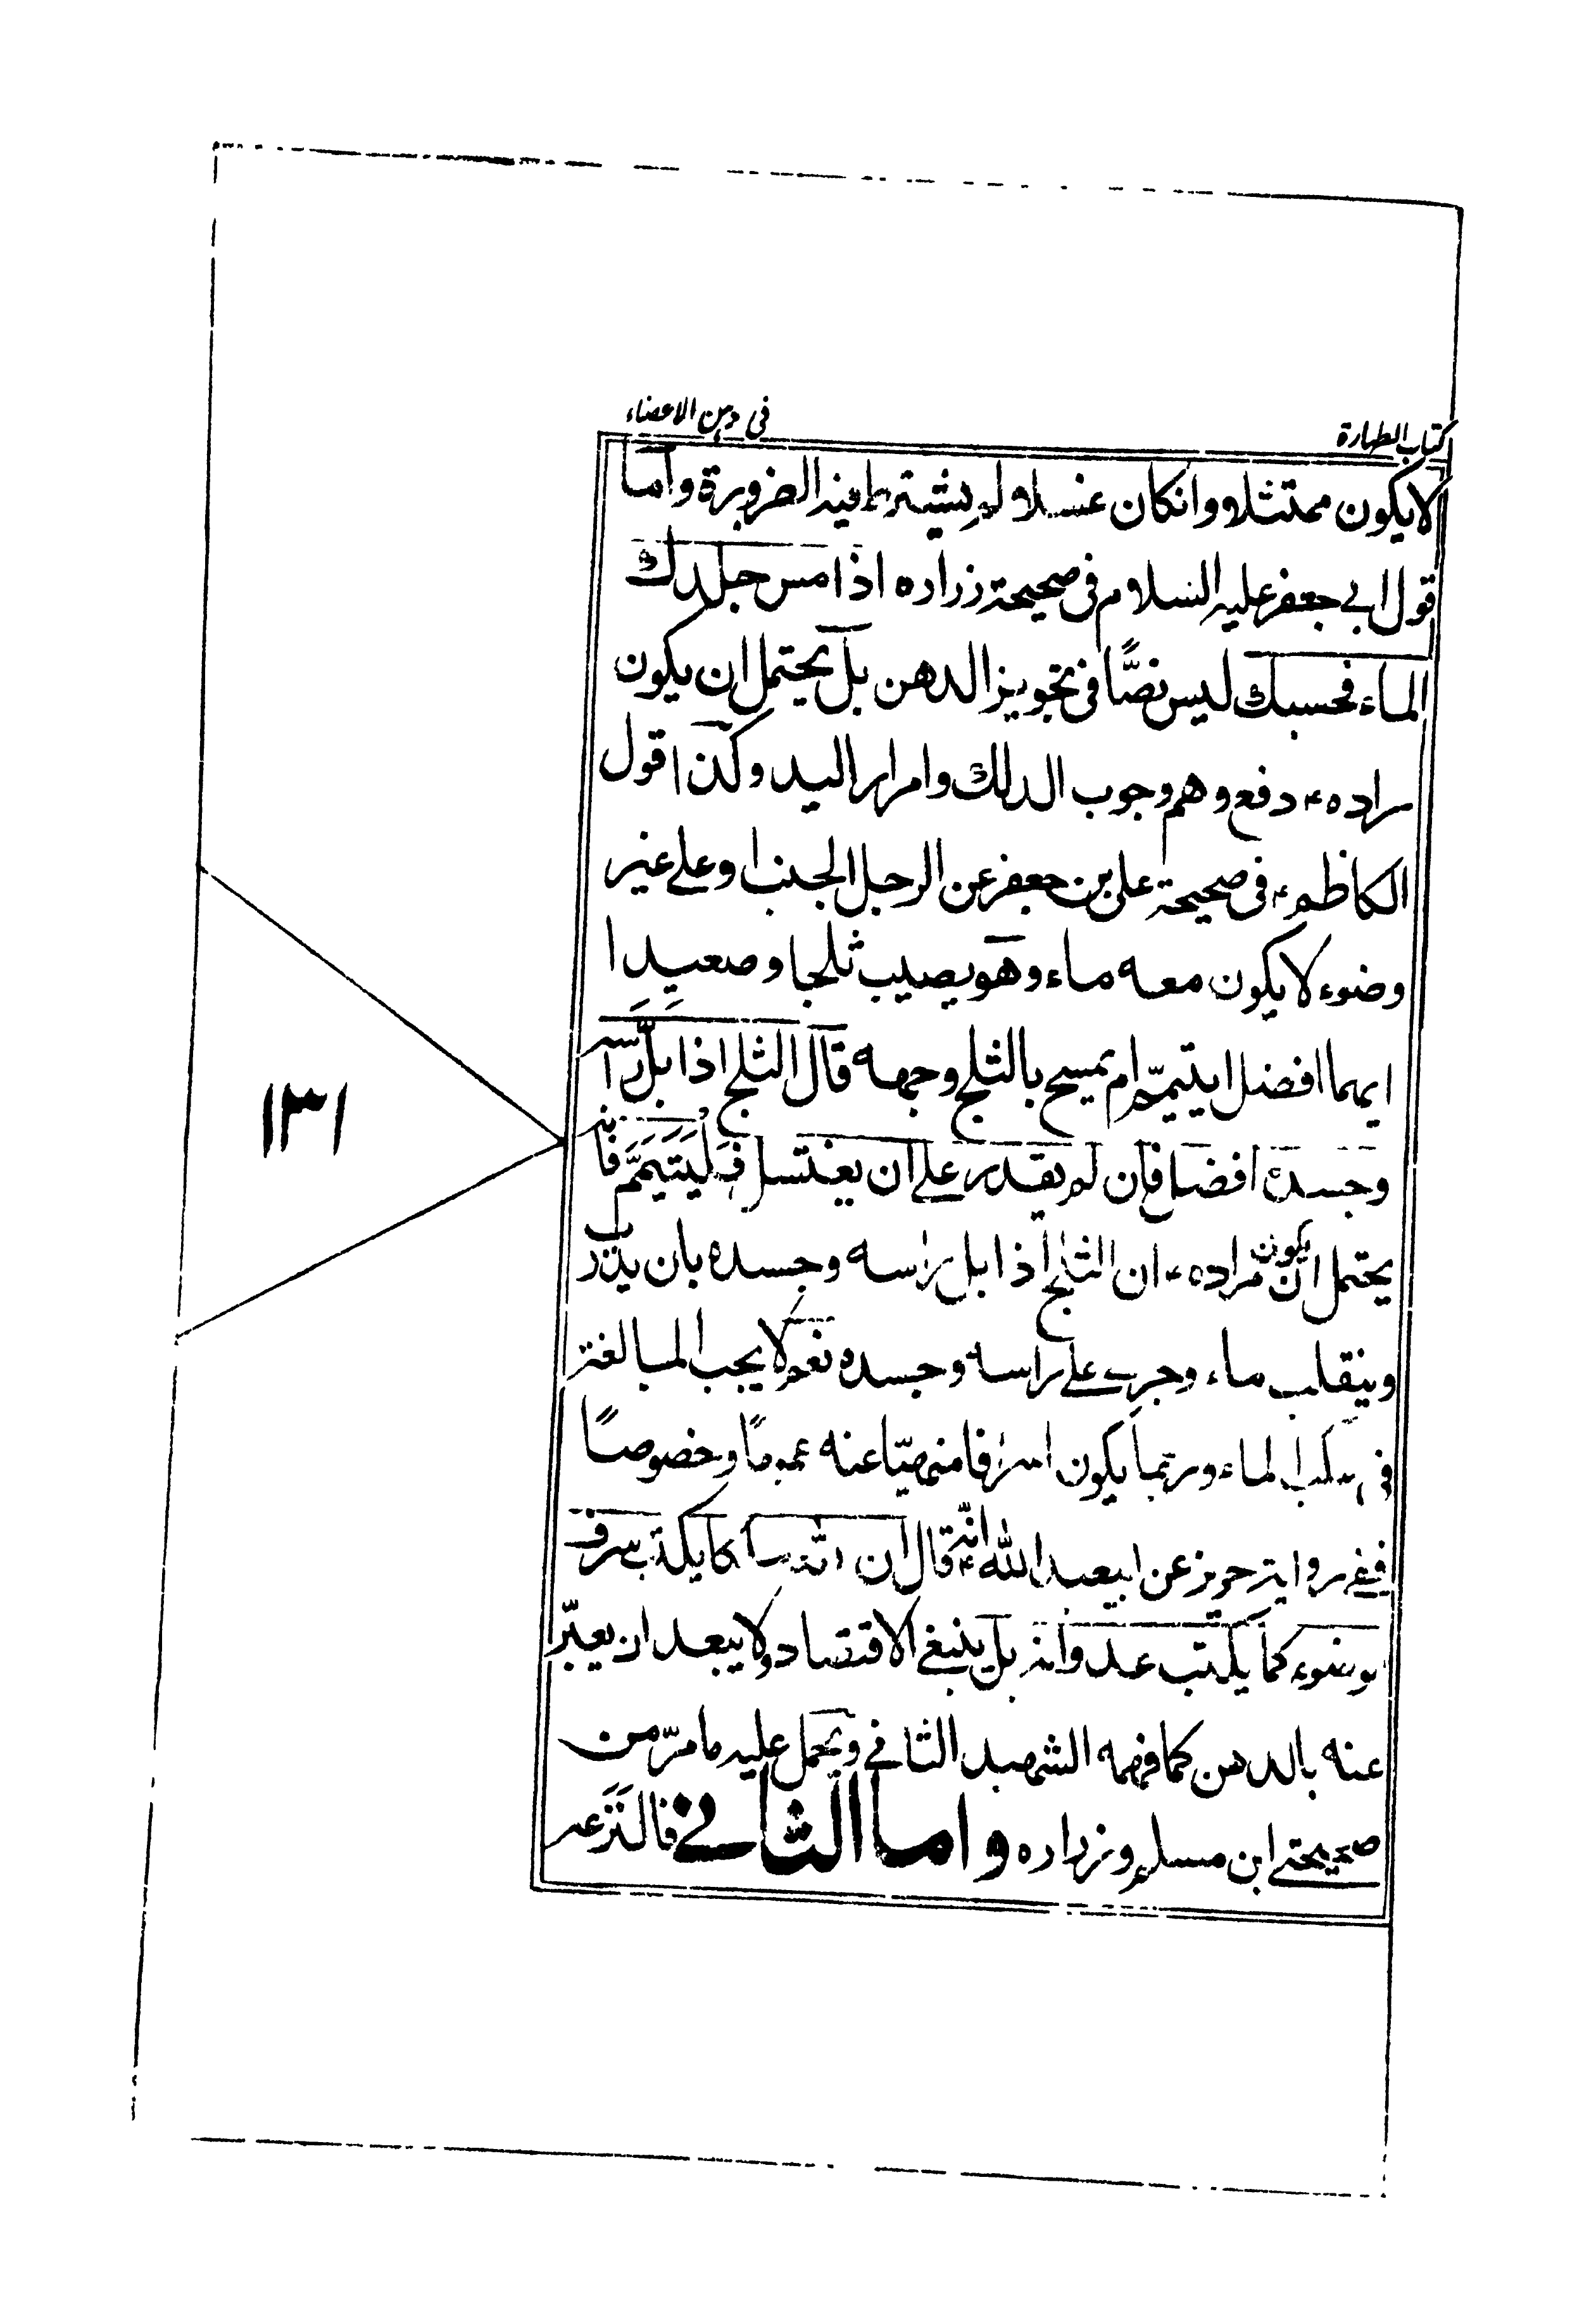 كتاب الطهارة
في دهن الاعضاء
لا يكون ممتثلا وانكان غسلا ولم يشترط فيه الضرورة واما
قول ابي جعفر عليه السلام في صحيحة زراره اذا مس جلدك
الماء فحسبك ليس نصًّا في تجويز الدهن بل يحتمل ان يكون
مراده ع دفع وهم وجوب الدلك وامرار اليد وكذا قول
الكاظم ع في صحيحة على بن جعفر عن الرجل الجنب او على غير
وضوء لا يكون معه ماء وهو يصيب ثلجا وصعيدا
ايهما افضل ايتيمّم ام يمسح بالثلج وجهه قال الثلج اذا بلّ رَاسه
وجسده افضل فان لم يقدر على ان يغتسل فَلْيَتَيَمَّم فانه
يحتمل ان يكون مراده ع ان الثلج اذا بل راسه وجسده بان يذوب
وينقلب ماء وجرى على راسه وجسده نعم لا يجب المبالغة
في سكب الماء وربما يكون اسرافا منهيّا عنه عمومًا وخصوصًا
ففي رواية حريز عن ابيعبد الله ع انّه قال ان لله ملكا يكتب سرف
الوضوء كما يكتب عدوانه بل ينبغي الاقتصاد ولا يبعد ان يعبّر
عنه بالدهن كما فهمه الشهيد الثاني ويحمل عليه ما مرّ من
صحيحتي ابن مسلم وزراره واما الثاني فالنَزعه
١٣١